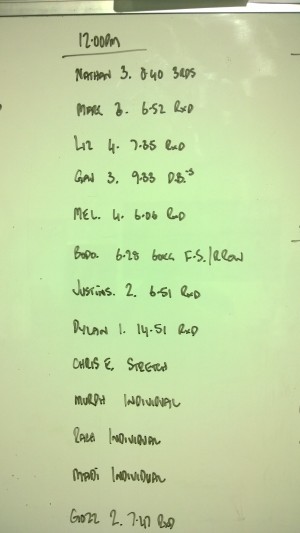 12.00pm
NATHAN 3. 8.40 3RDS
MARK 3. 6.52 RxD
LIZ 4. 7.35 RxD
3. 9.33 D.B.'s
MEL. 4. 6.06 RxD
BODO. 6.28 60KG F.S./RROW
JUSTINS. 2. 6.51 RxD
DYLAN 1. 14.51 RxD
CHRIS E. STRETCH
MURPH INDIVIDUAL
INDIVIDUAL
MADI INDIVIDUAL
GOZZ 2. 7.47 RxD